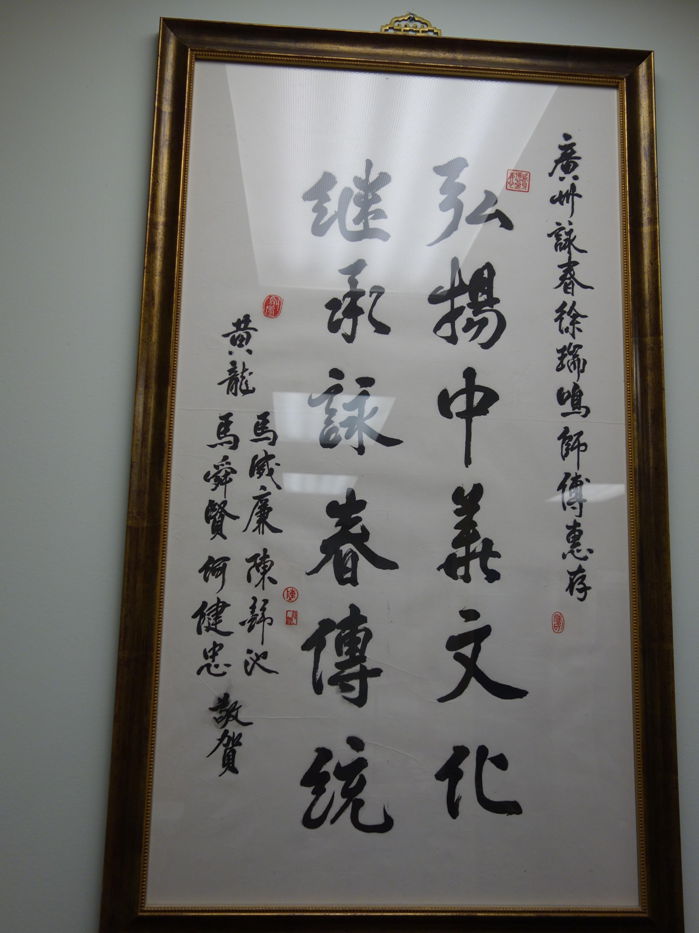 廣州詠春徐瑞鳴師傅惠存
弘揚中華文化
继承詠春傳統
黄龍
馬威廉 陳錦池
馬舜賢 何健忠
敬賀